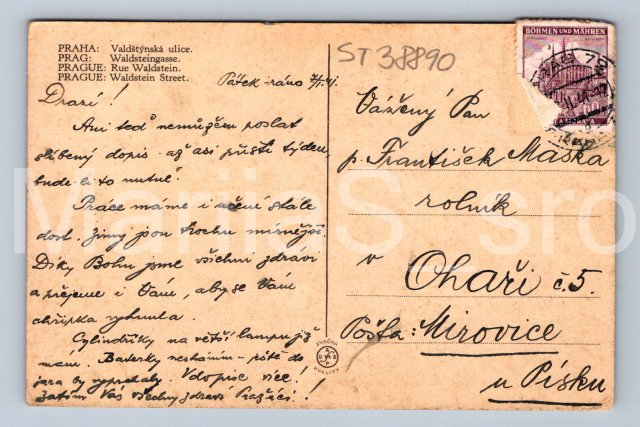 PRAHA: Valdštýnska ulice.
PRAG: Waldsteingasse.
PRAGUE: Rue Waldstein.
PRAGUE: Waldstein Street.
ST 38890
BÖHMEN UND MÄHREN
60
Pátek - ráno
Drazí!
Ani teď nemůžeme poslat
slíbený dopis až asi příští týden,
bude-li to nutné.
Práce máme i učení stále
dost. Zimy jsou trochu mírnější.
Díky Bohu jsme všichni zdrávi
a přejeme i Vám, aby se Vám
chřipka vyhnula.
Cylindříky na větší lampu již
mám. Baterky nesháním - ještě do
jara by vyprchaly. V dopise více!
Zatím Vás všechny zdraví Pražáci!
Vážený Pan
p. František Maška
rolník
v Ohaři č. 5
Pošta: Mirovice
u Písku
ZNAČKA
QUALITY
MarijaS_sro